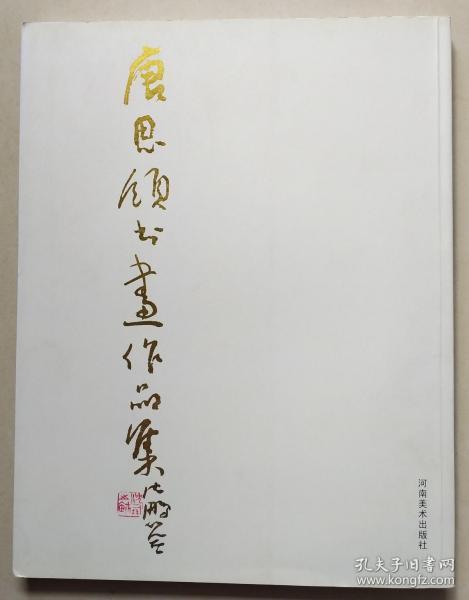 唐思领书画作品集
河南美术出版社
孔夫子旧书网
www.kongfz.com